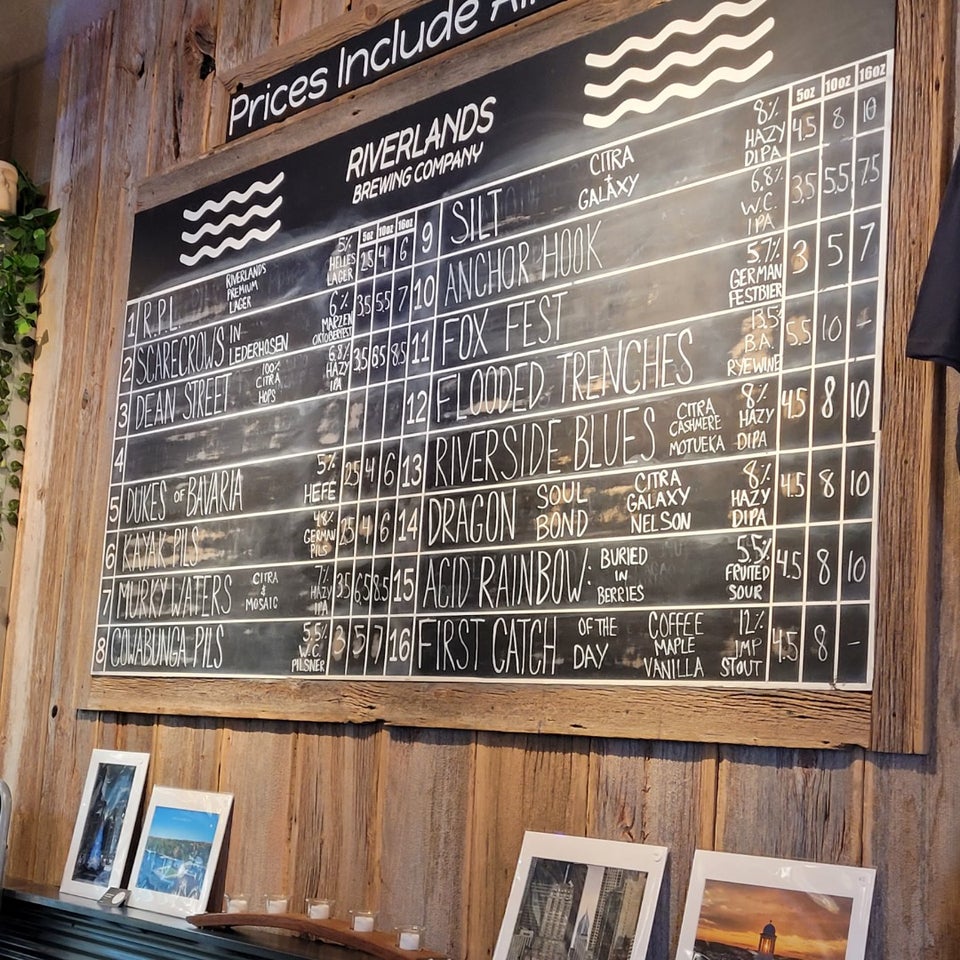 Prices Include All
RIVERLANDS
BREWING COMPANY
5oz 10oz 16oz
1 R.P.L. RIVERLANDS PREMIUM LAGER 5% HELLES LAGER 2.5 4 6
2 SCARECROWS IN LEDERHOSEN 6% MARZEN OKTOBERFEST 3.5 5.5 7
3 DEAN STREET 100% CITRA HOPS 6.8% HAZY IPA 3.5 6.5 8.5
4
5 DUKES OF BAVARIA 5% HEFE 2.5 4 6
6 KAYAK PILS 4.8% GERMAN PILS 2.5 4 6
7 MURKY WATERS CITRA & MOSAIC 7% HAZY IPA 3.5 6.5 8.5
8 COWABUNGA PILS 5.5% W.C. PILSNER 3 5 7
5oz 10oz 16oz
9 SILT CITRA + GALAXY 8% HAZY DIPA 4.5 8 10
10 ANCHOR HOOK 6.8% W.C. IPA 3.5 5.5 7.5
11 FOX FEST 5.7% GERMAN FESTBIER 3 5 7
12 FLOODED TRENCHES 13.5% B.A. RYEWINE 5.5 10 -
13 RIVERSIDE BLUES CITRA CASHMERE MOTUEKA 8% HAZY DIPA 4.5 8 10
14 DRAGON SOUL BOND CITRA GALAXY NELSON 8% HAZY DIPA 4.5 8 10
15 ACID RAINBOW: BURIED IN BERRIES 5.5% FRUITED SOUR 4.5 8 10
16 FIRST CATCH OF THE DAY COFFEE MAPLE VANILLA 12% IMP STOUT 4.5 8 -